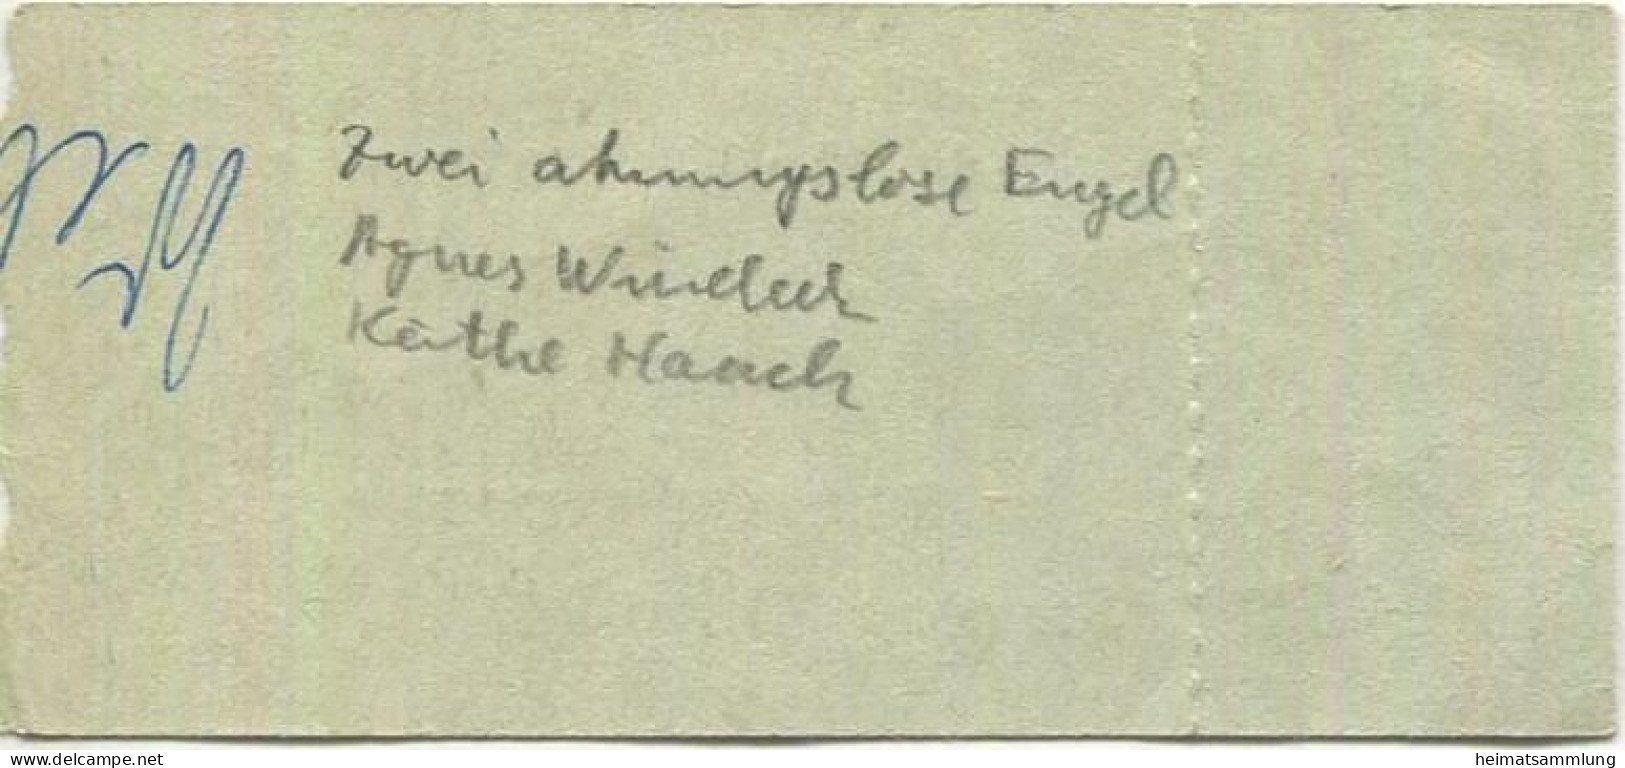 Zwei ahnungslose Engel
Agnes Windeck
Käthe Haack
www.delcampe.net
heimatsammlung